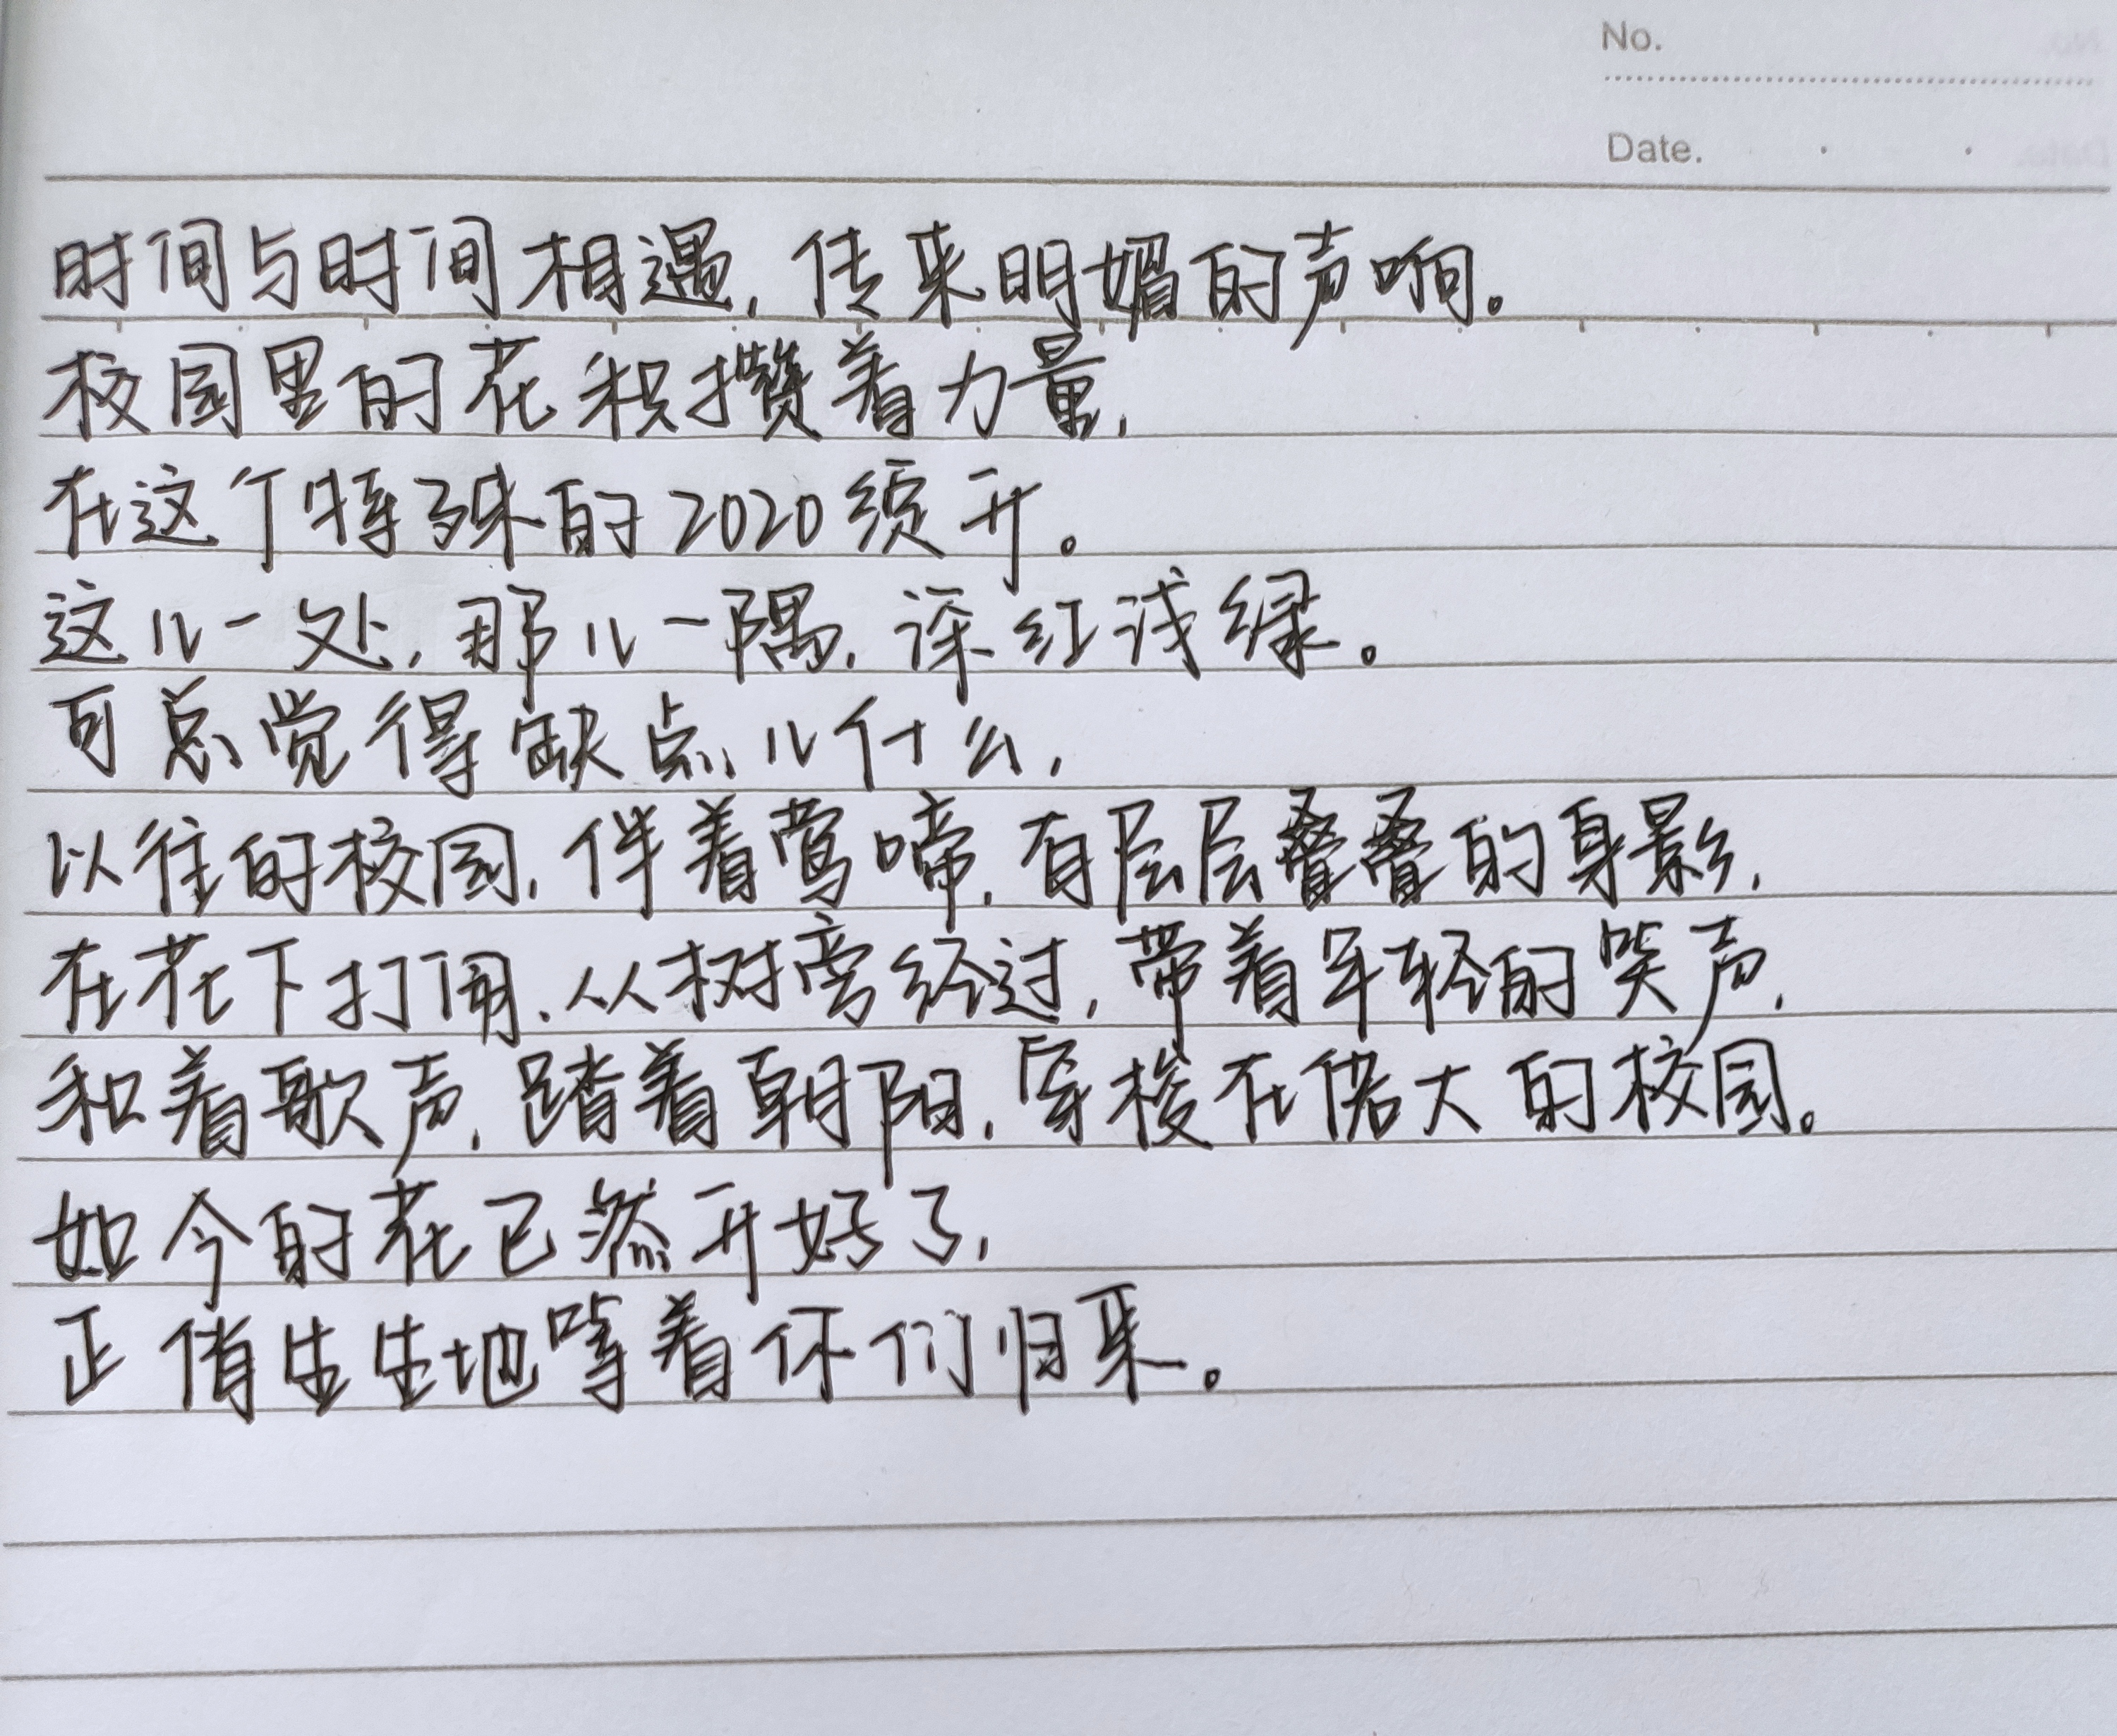 No.
Date.
时间与时间相遇,传来明媚的声响。
校园里的花积攒着力量,
在这个特殊的2020绽开。
这儿一处,那儿一隅,深红浅绿。
可总觉得缺点儿什么,
以往的校园,伴着莺啼,有层层叠叠的身影,
在花下打闹、从树旁经过,带着年轻的笑声,
和着歌声,踏着朝阳,穿梭在偌大的校园。
如今的花已然开好了,
正俏生生地等着你们归来。